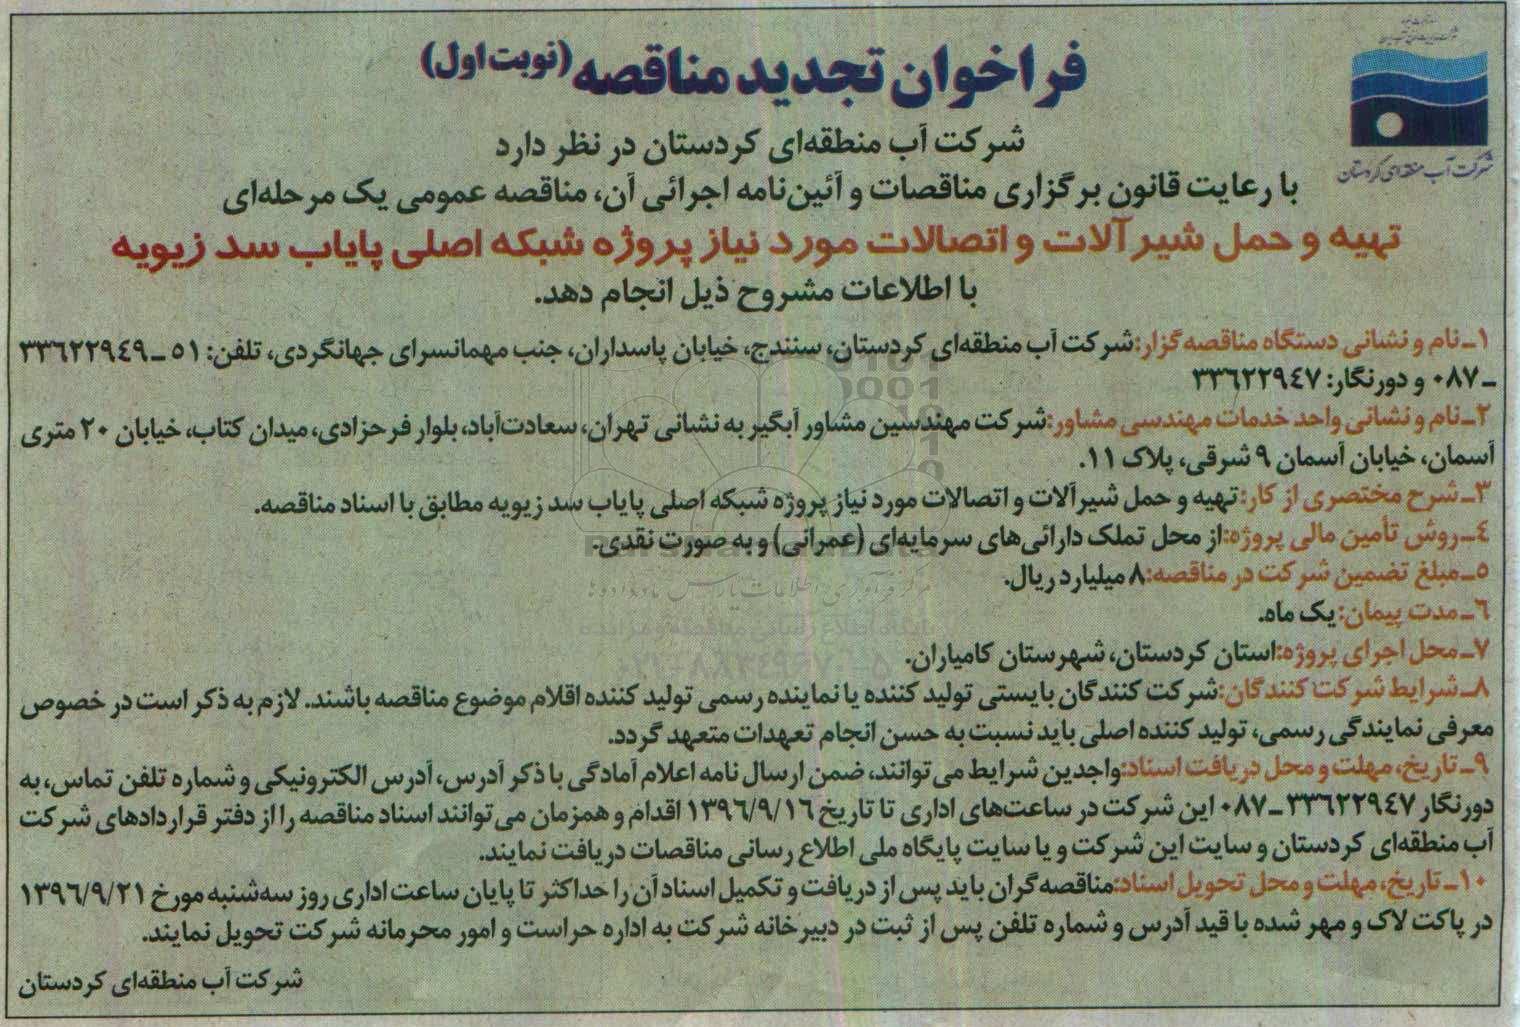 فراخوان تجدید مناقصه (نوبت اول)
شرکت آب منطقه‌ای کردستان
شرکت آب منطقه‌ای کردستان در نظر دارد
با رعایت قانون برگزاری مناقصات و آئین‌نامه اجرائی آن، مناقصه عمومی یک مرحله‌ای
تهیه و حمل شیرآلات و اتصالات مورد نیاز پروژه شبکه اصلی پایاب سد زیویه
با اطلاعات مشروح ذیل انجام دهد.
۱ـ نام و نشانی دستگاه مناقصه‌گزار: شرکت آب منطقه‌ای کردستان، سنندج، خیابان پاسداران، جنب مهمانسرای جهانگردی، تلفن: ۵۱ ـ ۳۳۶۲۲۹۴۹
ـ ۰۸۷ و دورنگار: ۳۳۶۲۲۹۴۷
۲ـ نام و نشانی واحد خدمات مهندسی مشاور: شرکت مهندسین مشاور آبگیر به نشانی تهران، سعادت‌آباد، بلوار فرحزادی، میدان کتاب، خیابان ۲۰ متری
آسمان، خیابان آسمان ۹ شرقی، پلاک ۱۱.
۳ـ شرح مختصری از کار: تهیه و حمل شیرآلات و اتصالات مورد نیاز پروژه شبکه اصلی پایاب سد زیویه مطابق با اسناد مناقصه.
۴ـ روش تأمین مالی پروژه: از محل تملک دارائی‌های سرمایه‌ای (عمرانی) و به صورت نقدی.
۵ـ مبلغ تضمین شرکت در مناقصه: ۸ میلیارد ریال.
۶ـ مدت پیمان: یک ماه.
۷ـ محل اجرای پروژه: استان کردستان، شهرستان کامیاران.
۸ـ شرایط شرکت کنندگان: شرکت کنندگان بایستی تولید کننده یا نماینده رسمی تولید کننده اقلام موضوع مناقصه باشند. لازم به ذکر است در خصوص
معرفی نمایندگی رسمی، تولید کننده اصلی باید نسبت به حسن انجام تعهدات متعهد گردد.
۹ـ تاریخ، مهلت و محل دریافت اسناد: واجدین شرایط می‌توانند، ضمن ارسال نامه اعلام آمادگی با ذکر آدرس، آدرس الکترونیکی و شماره تلفن تماس، به
دورنگار ۳۳۶۲۲۹۴۷ ـ ۰۸۷ این شرکت در ساعت‌های اداری تا تاریخ ۱۳۹۶/۹/۱۶ اقدام و همزمان می‌توانند اسناد مناقصه را از دفتر قراردادهای شرکت
آب منطقه‌ای کردستان و سایت این شرکت و یا سایت پایگاه ملی اطلاع رسانی مناقصات دریافت نمایند.
۱۰ـ تاریخ، مهلت و محل تحویل اسناد: مناقصه‌گران باید پس از دریافت و تکمیل اسناد آن را حداکثر تا پایان ساعت اداری روز سه‌شنبه مورخ ۱۳۹۶/۹/۲۱
در پاکت لاک و مهر شده با قید آدرس و شماره تلفن پس از ثبت در دبیرخانه شرکت به اداره حراست و امور محرمانه شرکت تحویل نمایند.
شرکت آب منطقه‌ای کردستان